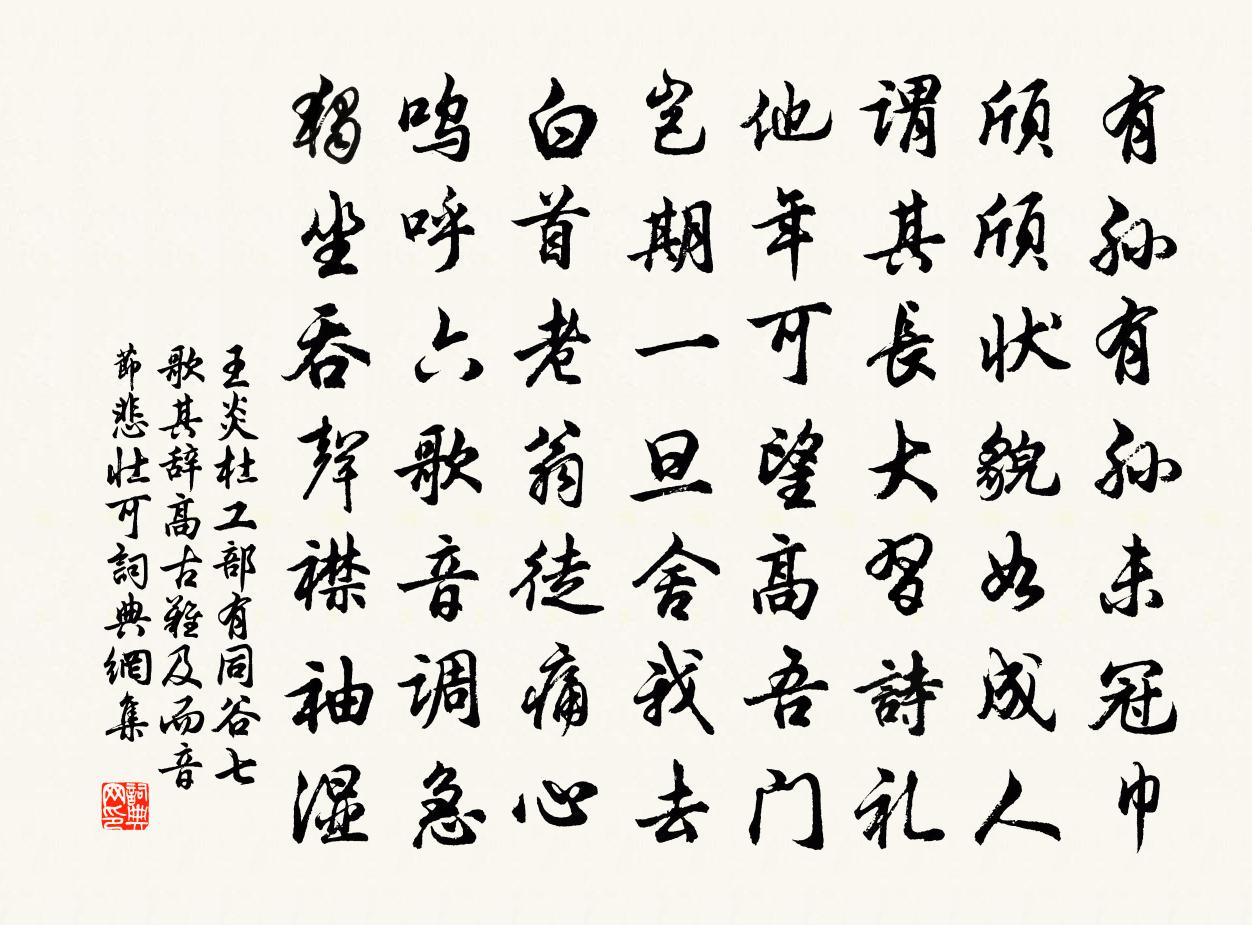 有孙有孙未冠巾
颀颀状貌如成人
谓其長大習詩礼
他年可望高吾门
岂期一旦舍我去
白首老翁徒痛心
鸣呼六歌音调急
獨坐吞聲襟袖湿
王炎杜工部有同谷七
歌其辞高古難及而音
節悲壮可詞典網集
詞典网印